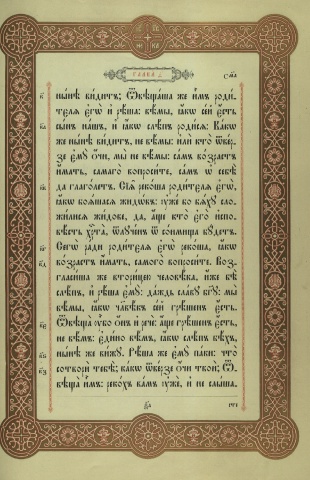 ГЛАВА
сма
нынѣ видитъ; Ѿвѣщаста же имъ роди-
телѧ єгѡ̀ и рѣша: вѣмы, ꙗкѡ сей єсть
сынъ нашъ, и ꙗкѡ слѣпъ родисѧ: Какѡ
же нынѣ видитъ, не вѣмы: или кто ѿвер-
зе ємꙋ ѻчи, мы не вѣмы: самъ возрастъ
имать, самаго вопросите, самъ ѡ себѣ
да глаголетъ. Сїѧ рекоста родителѧ єгѡ,
ꙗкѡ боѧстасѧ жидѡвъ: ᲂуже бо бѧхꙋ сло-
жилисѧ жидове, да, аще кто єго испо-
вѣсть хрⷭ҇та, ѿлꙋченъ ѿ сонмища бꙋдетъ.
Сегѡ ради родителѧ єгѡ рекоста, ꙗкѡ
возрастъ имать, самого вопросите. Воз-
гласиша же вторицею человѣка, иже бѣ
слѣпъ, и рѣша ємꙋ: даждь славꙋ бг҃ꙋ: мы
вѣмы, ꙗкѡ чл҃вѣкъ сей грѣшенъ єсть.
Ѿвѣща ᲂубо ѻнъ и рече: аще грѣшенъ єсть,
не вѣмъ: єдино вѣмъ, ꙗкѡ слѣпъ бѣхъ,
нынѣ же вижꙋ. Рѣша же ємꙋ паки: что
сотвори тебѣ; какѡ ѿверзе ѻчи твои; Ѿ-
вѣща имъ: рекохъ вамъ ᲂуже, и не слыша-